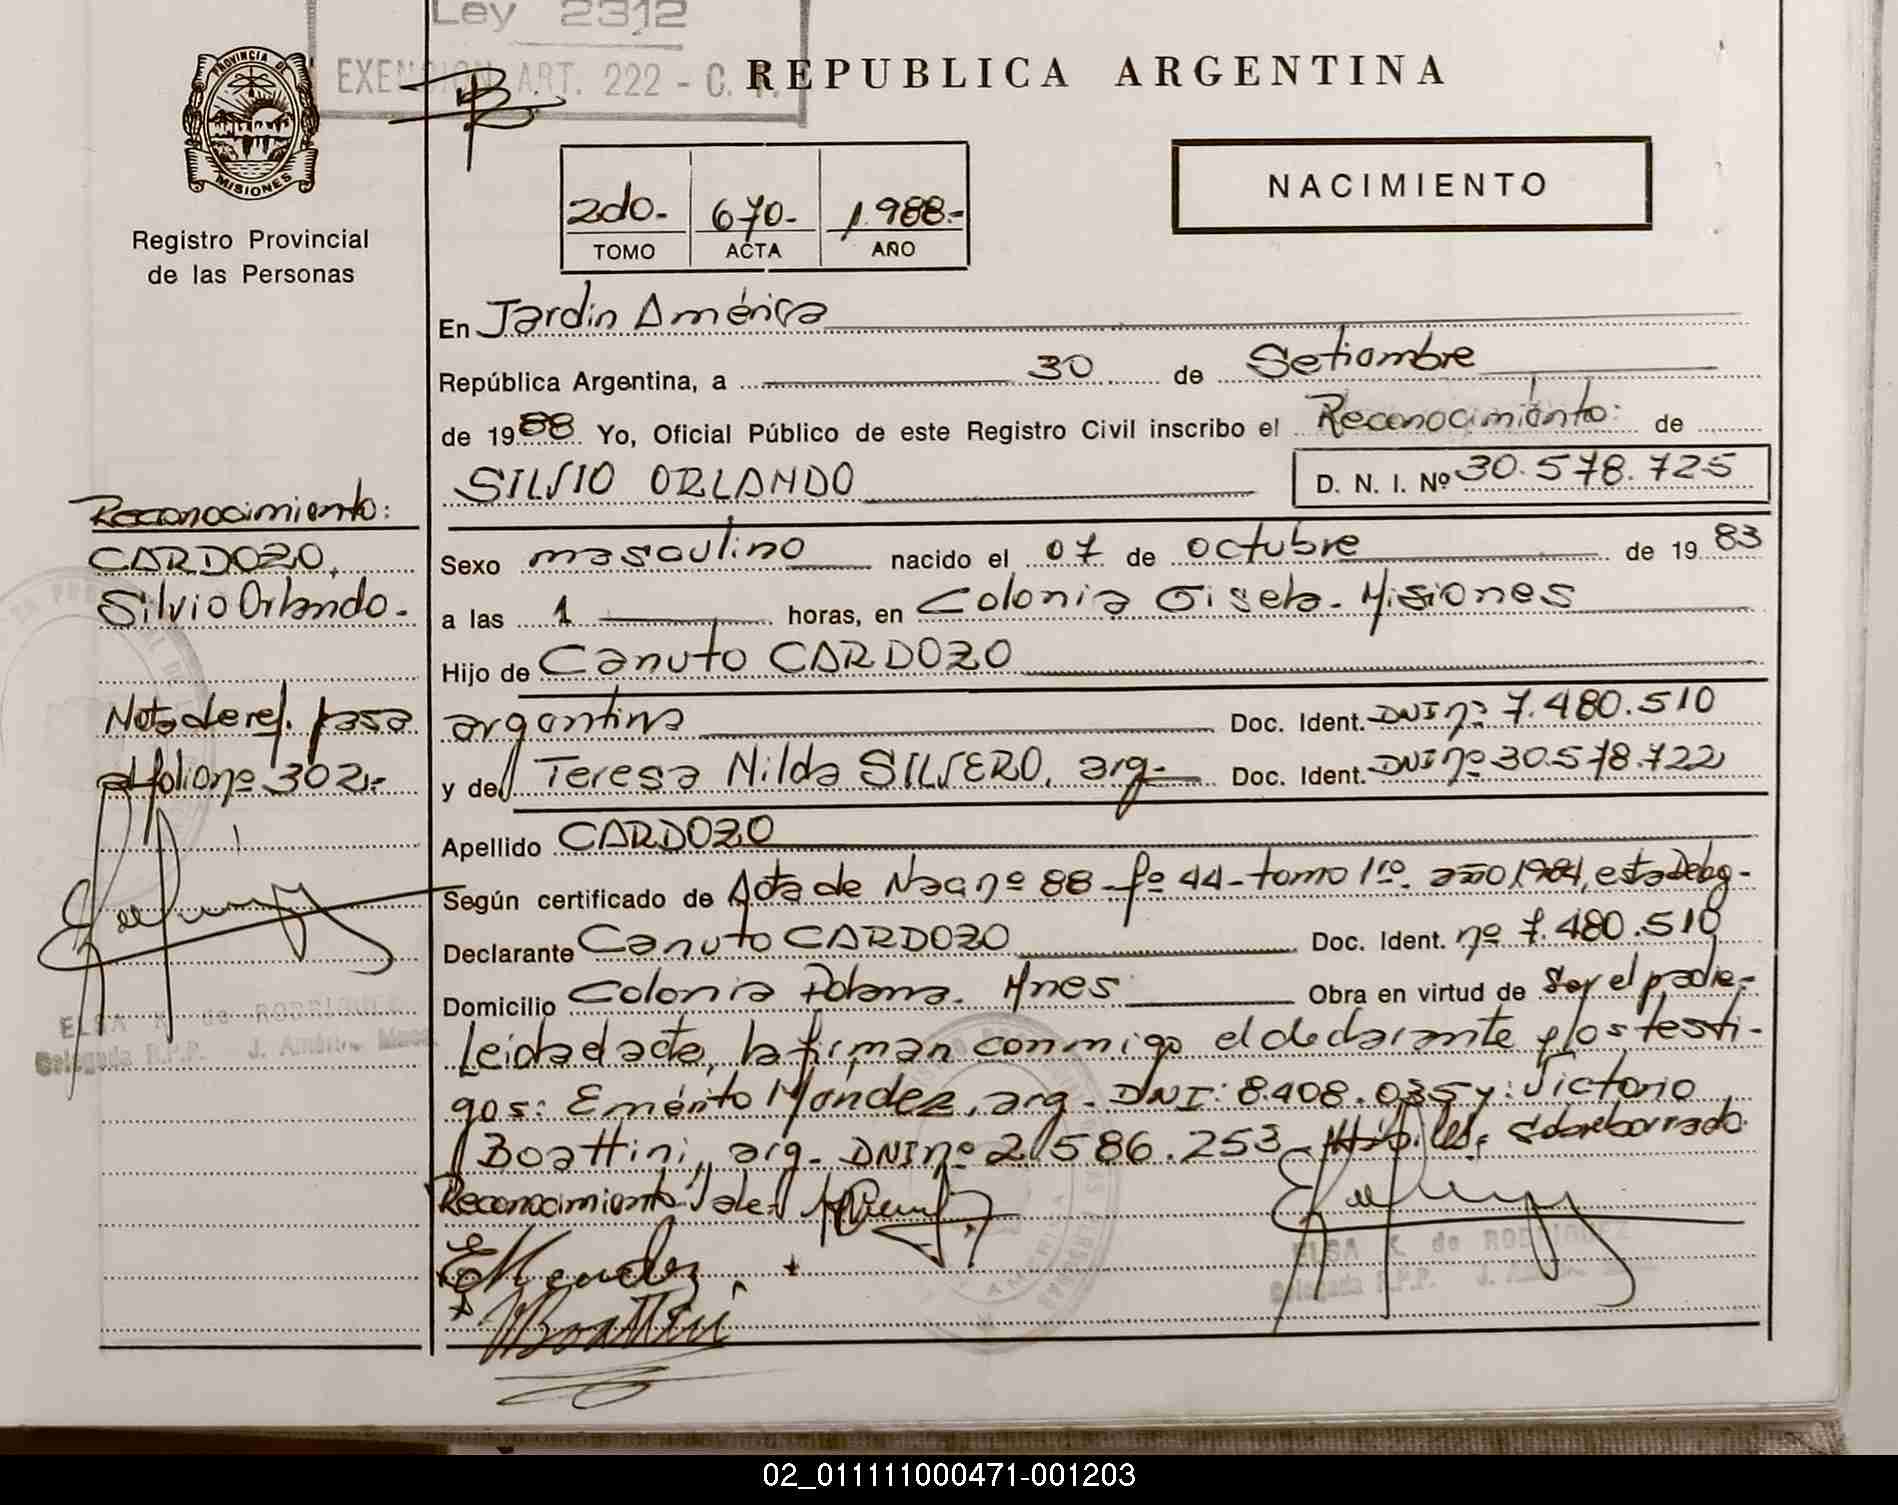 Ley 2312
EXENCION ART. 222 - C. F.
REPUBLICA ARGENTINA
PROVINCIA DE
MISIONES
Registro Provincial
de las Personas
2do.- 670.- 1.988.-
TOMO ACTA AÑO
NACIMIENTO
En Jardin América
República Argentina, a 30 de Setiembre
de 1988 Yo, Oficial Público de este Registro Civil inscribo el Reconocimiento: de
SILVIO ORLANDO D. N. I. Nº 30.578.725
Reconocimiento:
CARDOZO,
Silvio Orlando.-
Nota de ref. pasa
al folio nº 302.-
ELSA K. de RODRIGUEZ
Delegada R.P.P. J. América
Sexo masculino nacido el 07 de octubre de 1983
a las 1 horas, en Colonia Gisela - Misiones
Hijo de Canuto CARDOZO
argentino Doc. Ident. DNI nº 7.480.510
y de Teresa Nilda SILVERO, arg.- Doc. Ident. DNI nº 30.578.722
Apellido CARDOZO
Según certificado de Acta de Nac nº 88 - fº 44 - tomo 1ro. año 1984, esta Deleg-
Declarante Canuto CARDOZO Doc. Ident. nº 7.480.510
Domicilio Colonia Polana - Mnes Obra en virtud de Ser el padre.-
Leida el acta, la firman conmigo el declarante y los testi-
gos: Emérito Méndez, arg - DNI: 8.408.035 y: Victorio
Boattini, arg - DNI nº 2.586.253 - Hábiles, Sobreborrado
Reconocimiento Vale.
EMendez
Boattini
ELSA K. de RODRIGUEZ
Delegada R.P.P. J.
02_011111000471-001203